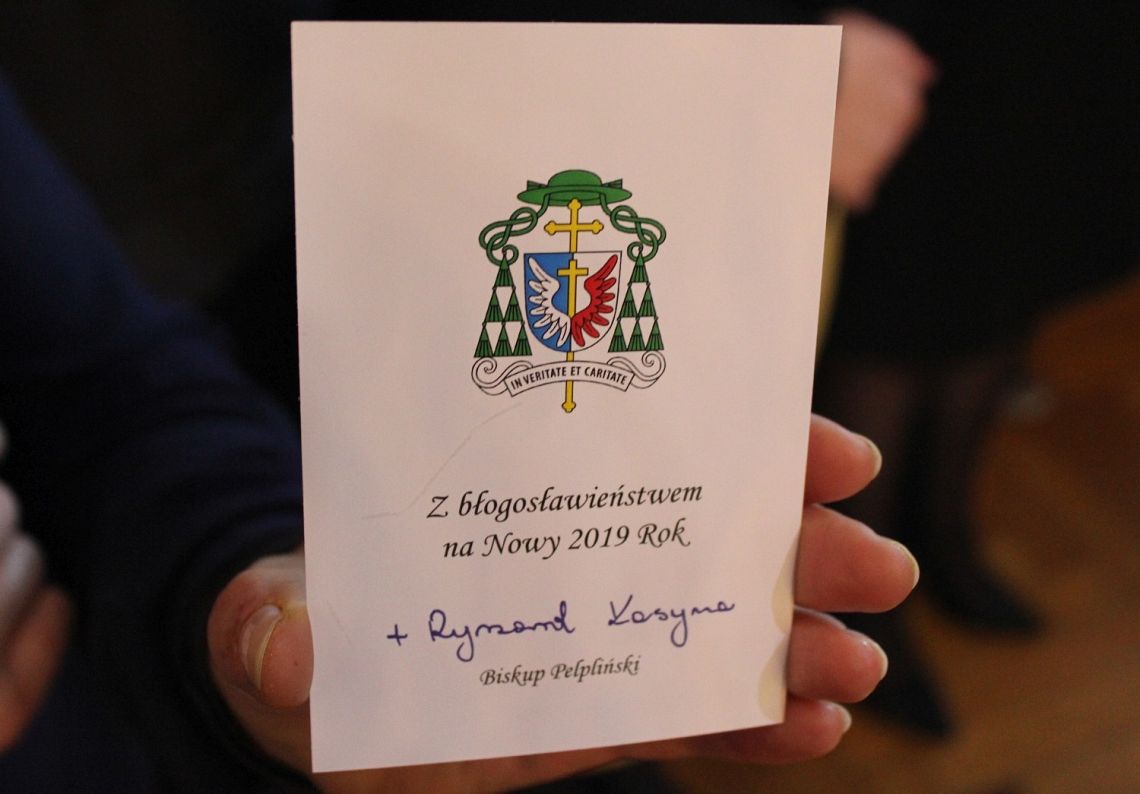 IN VERITATE ET CARITATE
Z błogosławieństwem
na Nowy 2019 Rok
+ Ryszard Kasyna
Biskup Pelpliński